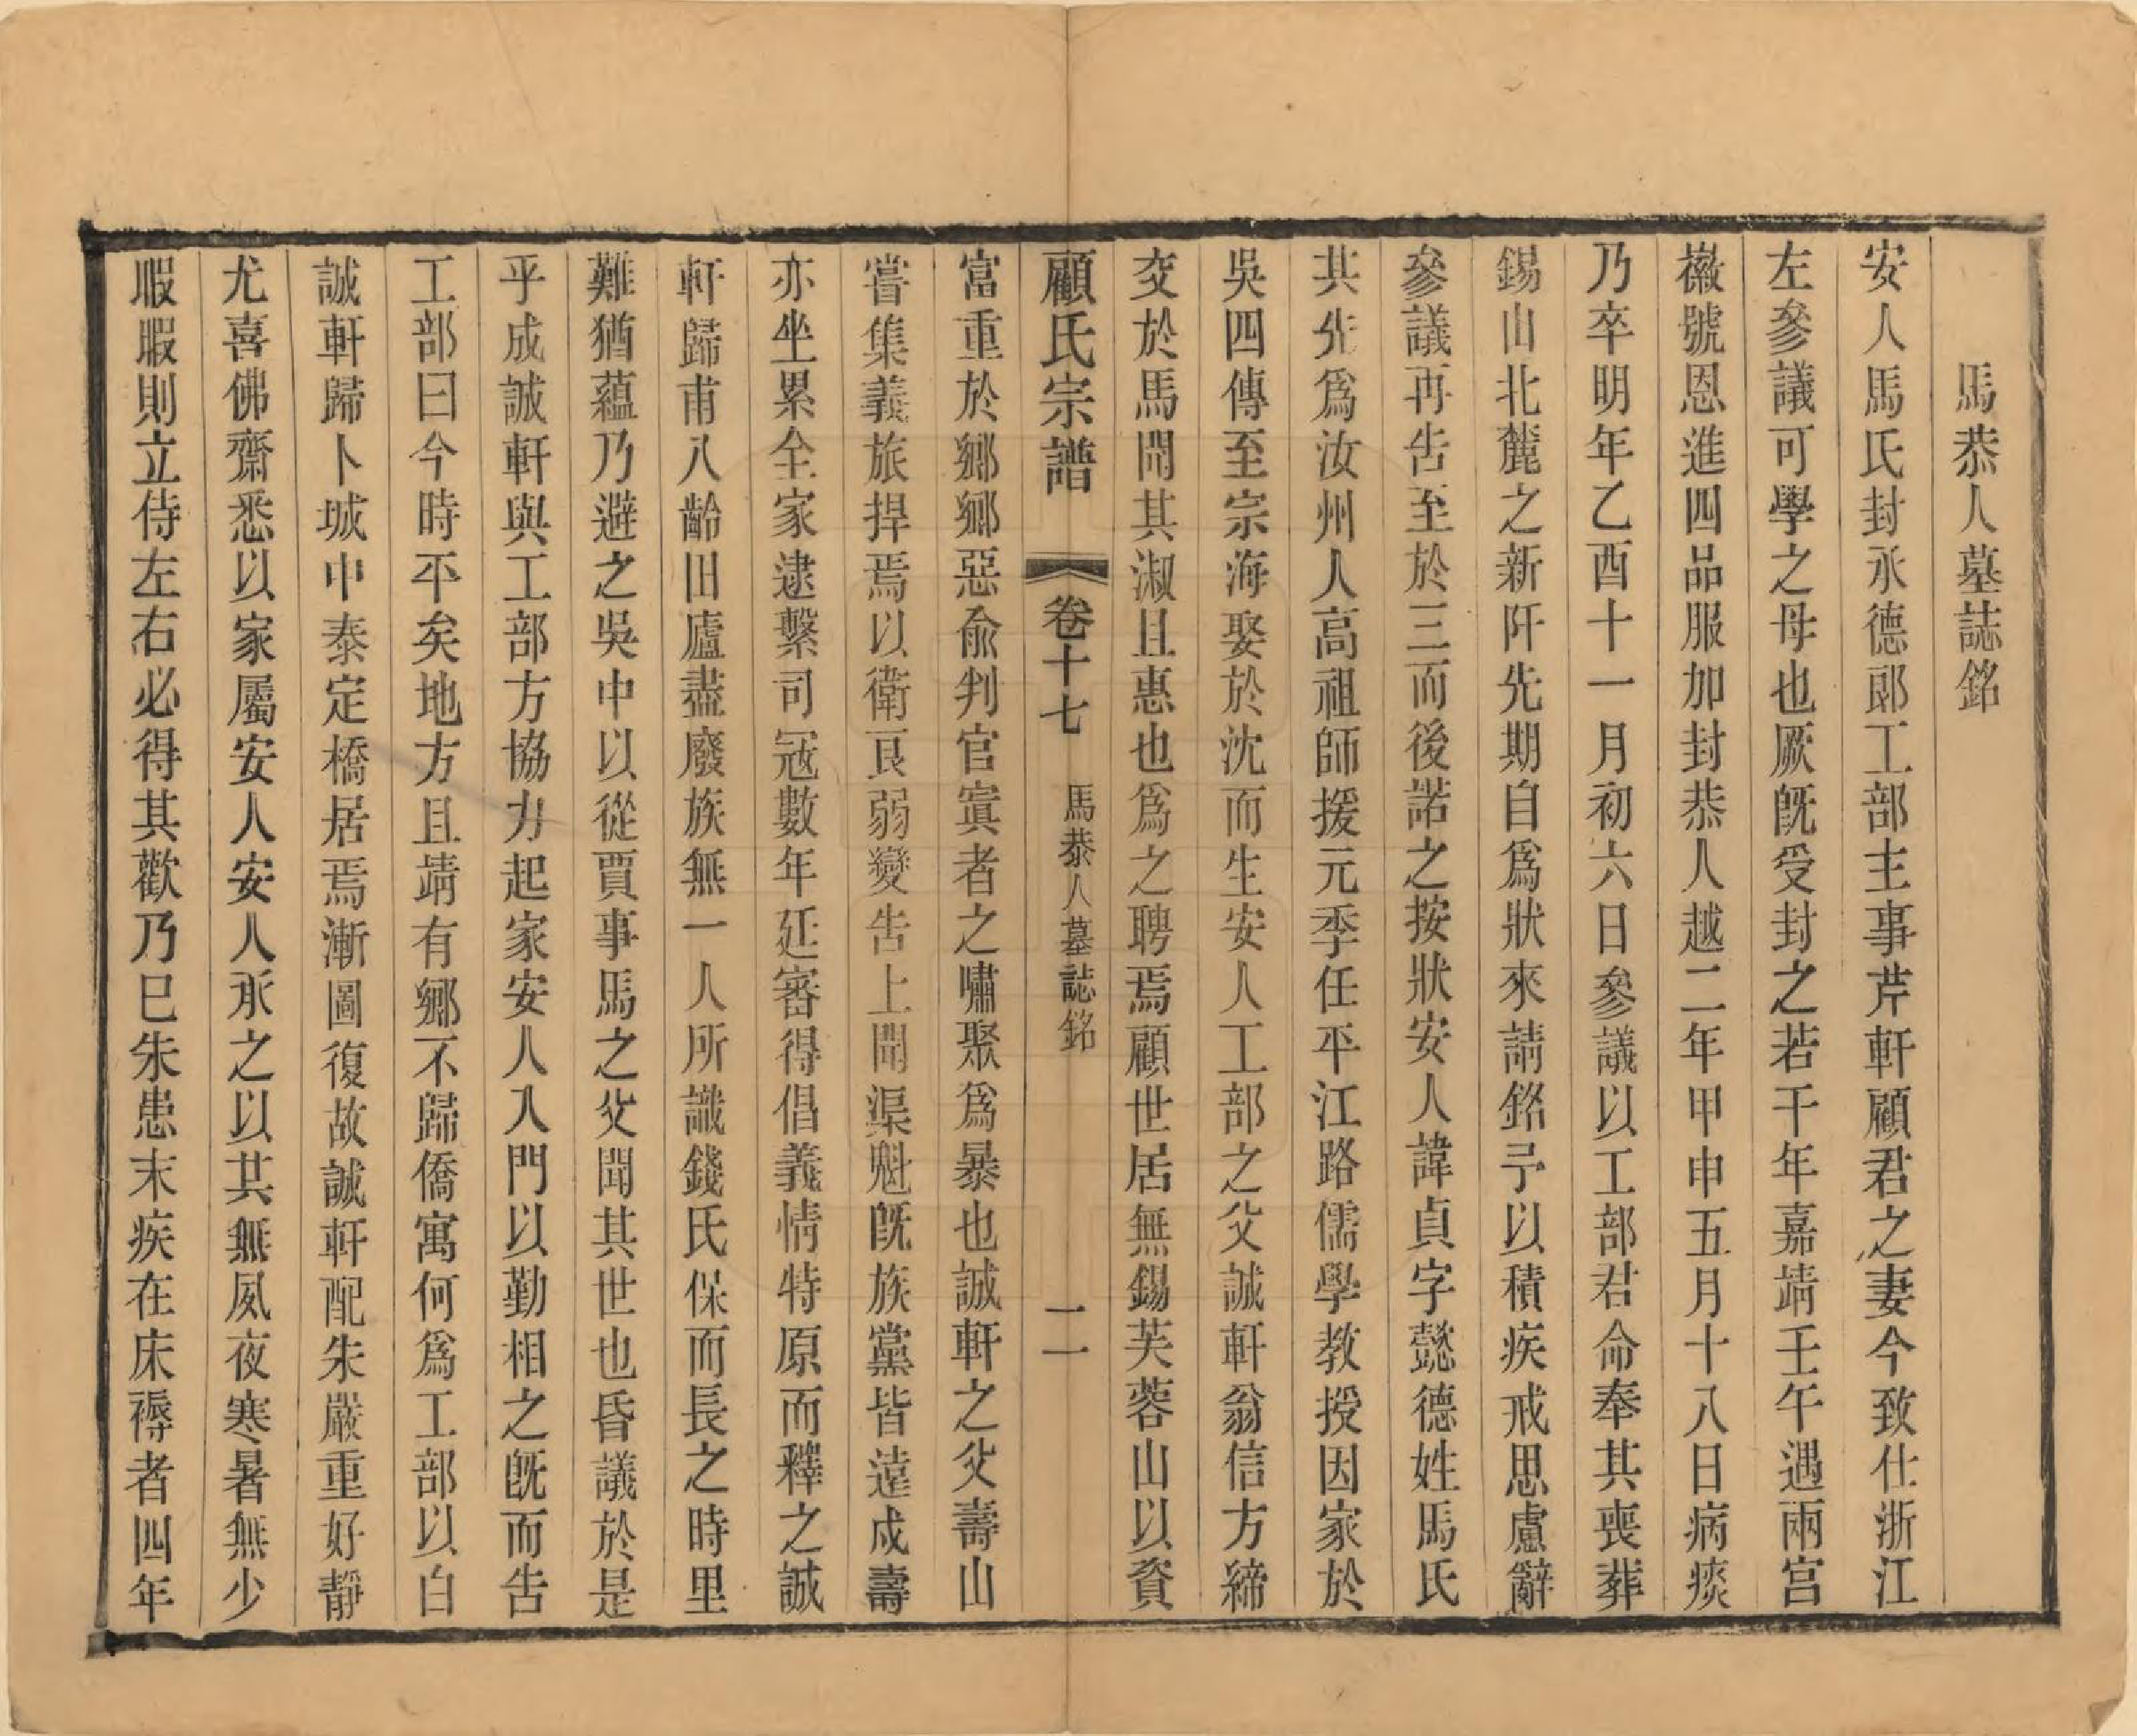 馬恭人墓誌銘
安人馬氏封承德郎工部主事芹軒顧君之妻今致仕浙江
左參議可學之母也厥旣受封之若干年嘉靖壬午遇兩宮
徽號恩進四品服加封恭人越二年甲申五月十八日病痰
乃卒明年乙酉十一月初六日參議以工部君命奉其喪葬
錫山北麓之新阡先期自爲狀來請銘予以積疾戒思慮辭
參議再告至於三而後諾之按狀安人諱貞字懿德姓馬氏
其先爲汝州人高祖師援元季任平江路儒學教授因家於
吳四傳至宗海娶於沈而生安人工部之父誠軒翁信方締
交於馬聞其淑且惠也爲之聘焉顧世居無錫芙蓉山以資
顧氏宗譜 卷十七 馬恭人墓誌銘 二
富重於鄉鄉惡俞判官寘者之嘯聚爲暴也誠軒之父壽山
嘗集義旅捍焉以衛良弱變告上聞渠魁旣族黨皆遠戍壽
亦坐累全家逮繫司冦數年廷審得倡義情特原而釋之誠
軒歸甫八齡旧廬盡廢族無一人所識錢氏保而長之時里
難猶蘊乃避之吳中以從賈事馬之父聞其世也昏議於是
乎成誠軒與工部方協力起家安人入門以勤相之旣而告
工部曰今時平矣地方且靖有鄉不歸僑寓何爲工部以白
誠軒歸卜城中泰定橋居焉漸圖復故誠軒配朱嚴重好靜
尤喜佛齋悉以家屬安人安人承之以其無夙夜寒暑無少
暇暇則立侍左右必得其歡乃巳朱患末疾在床褥者四年